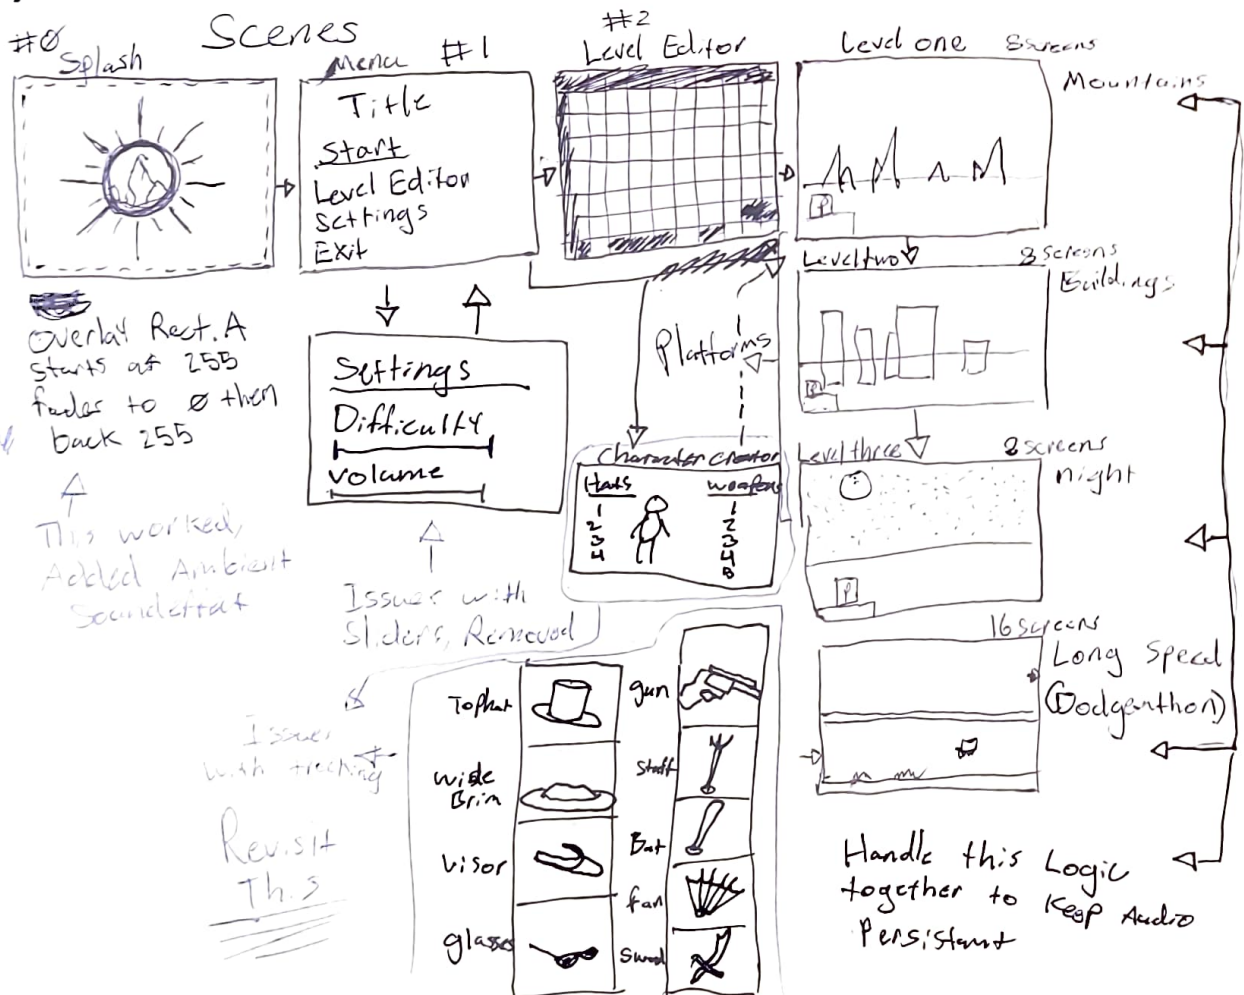 Scenes
#0
Splash
Menu #1
Title
Start
Level Editor
Settings
Exit
#2
Level Editor
Level one 8 screens
Mountains
Level two 8 screens
Buildings
Level three 8 screens
night
16 screens
Long Speed
(Dodgeathon)
P
P
P
Overlay Rect.A
starts at 255
fades to 0 then
back 255
This worked,
Added Ambient
Soundeffect
Settings
Difficulty
Volume
Issues with
Sliders, Removed
Platforms
Character Creator
Hats
1
2
3
4
Weapons
1
2
3
4
5
Issues
with tracking
Revisit
This
Tophat
Wide
Brim
Visor
glasses
gun
Staff
Bat
fan
Sword
Handle this Logic
together to Keep Audio
Persistant